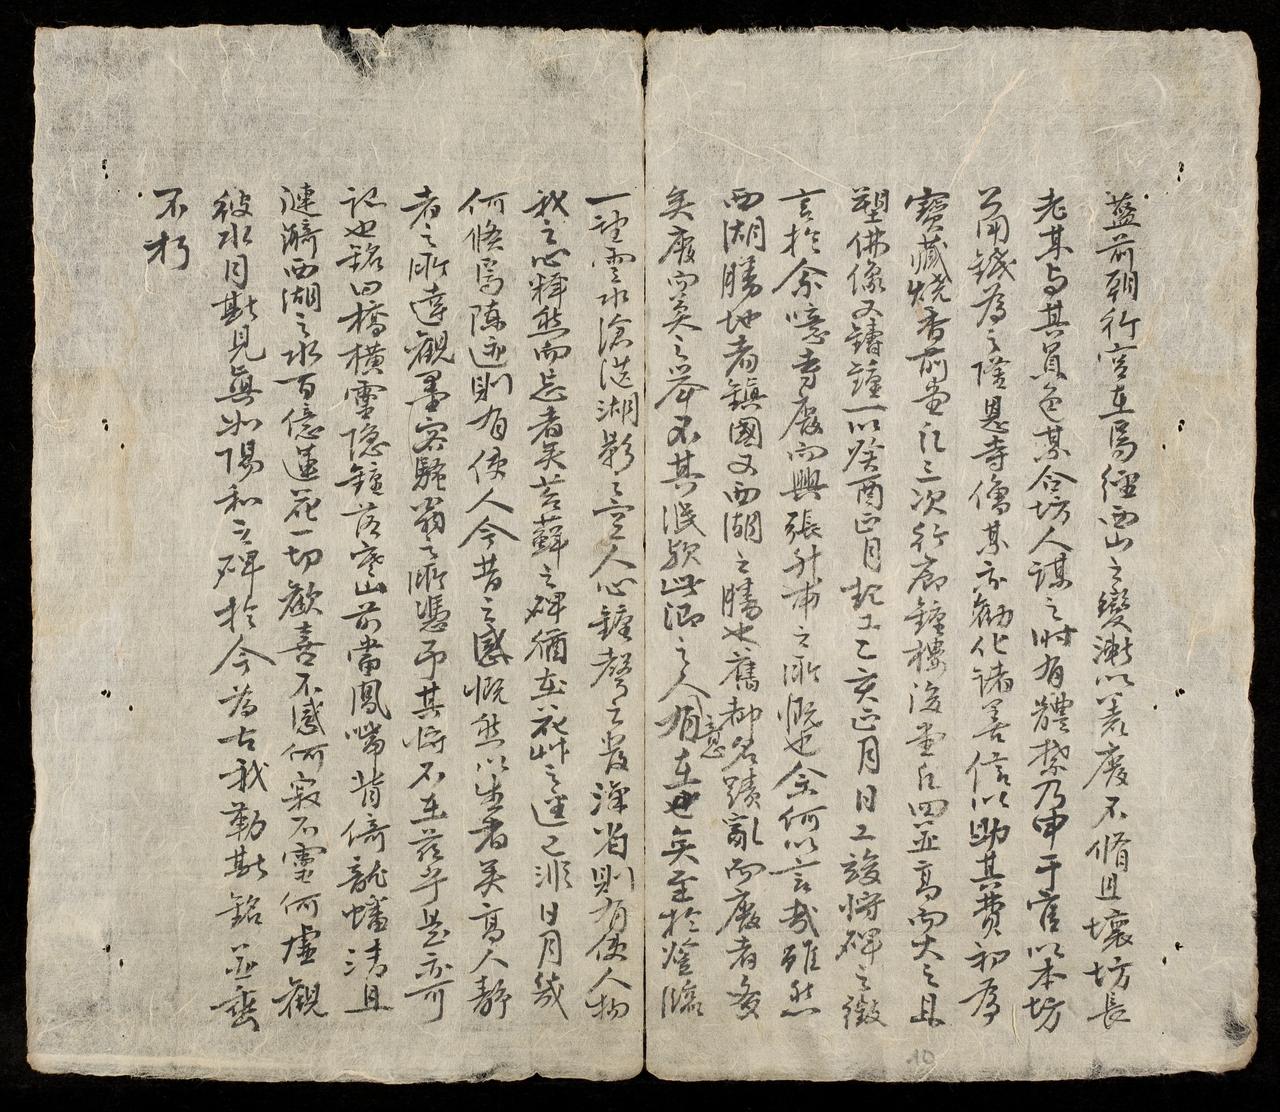 蓋前朝行宮在焉經西山之變漸以蕪廢不脩且壞坊長
老某与其員色某合坊人謀之時有體禁乃申于官以本坊
公用錢為之僅思寺僧某亦勸化諸善信以助其費初為
寶藏燒香前堂凡三次行廊鐘樓後堂凡四並高而大之且
塑佛像又鑄鐘一以癸酉正月起工乙亥正月日工竣將碑之徵
言於余噫寺廢而興張升甫之所慨也余何以言哉雖然
西湖勝地者鎮國又西湖之勝也舊都名蹟亂而廢者多
矣廢而奠之舉不其淺歟此鄉之人有意在也矣至於登臨
一望雲水滄茫湖影影空人心鐘聲之發深省則有使人物
我之心釋然而忘者矣苔蘚之碑猶在花艸之逕已非日月幾
何倏為陳迹則有使人今昔之感慨然以生者矣高人靜
者之所達觀墨客騷翁之所憑吊其將不在茲乎是亦可
記也銘曰橋橫雲隱鐘落寒山前當鳳嘴背倚龍蟠清且
漣漪西湖之水百億蓮花一切歡喜不感何寂不靈何虛觀
彼水月斯見真如陽和之碑於今為古我勒斯銘並垂
不朽
10